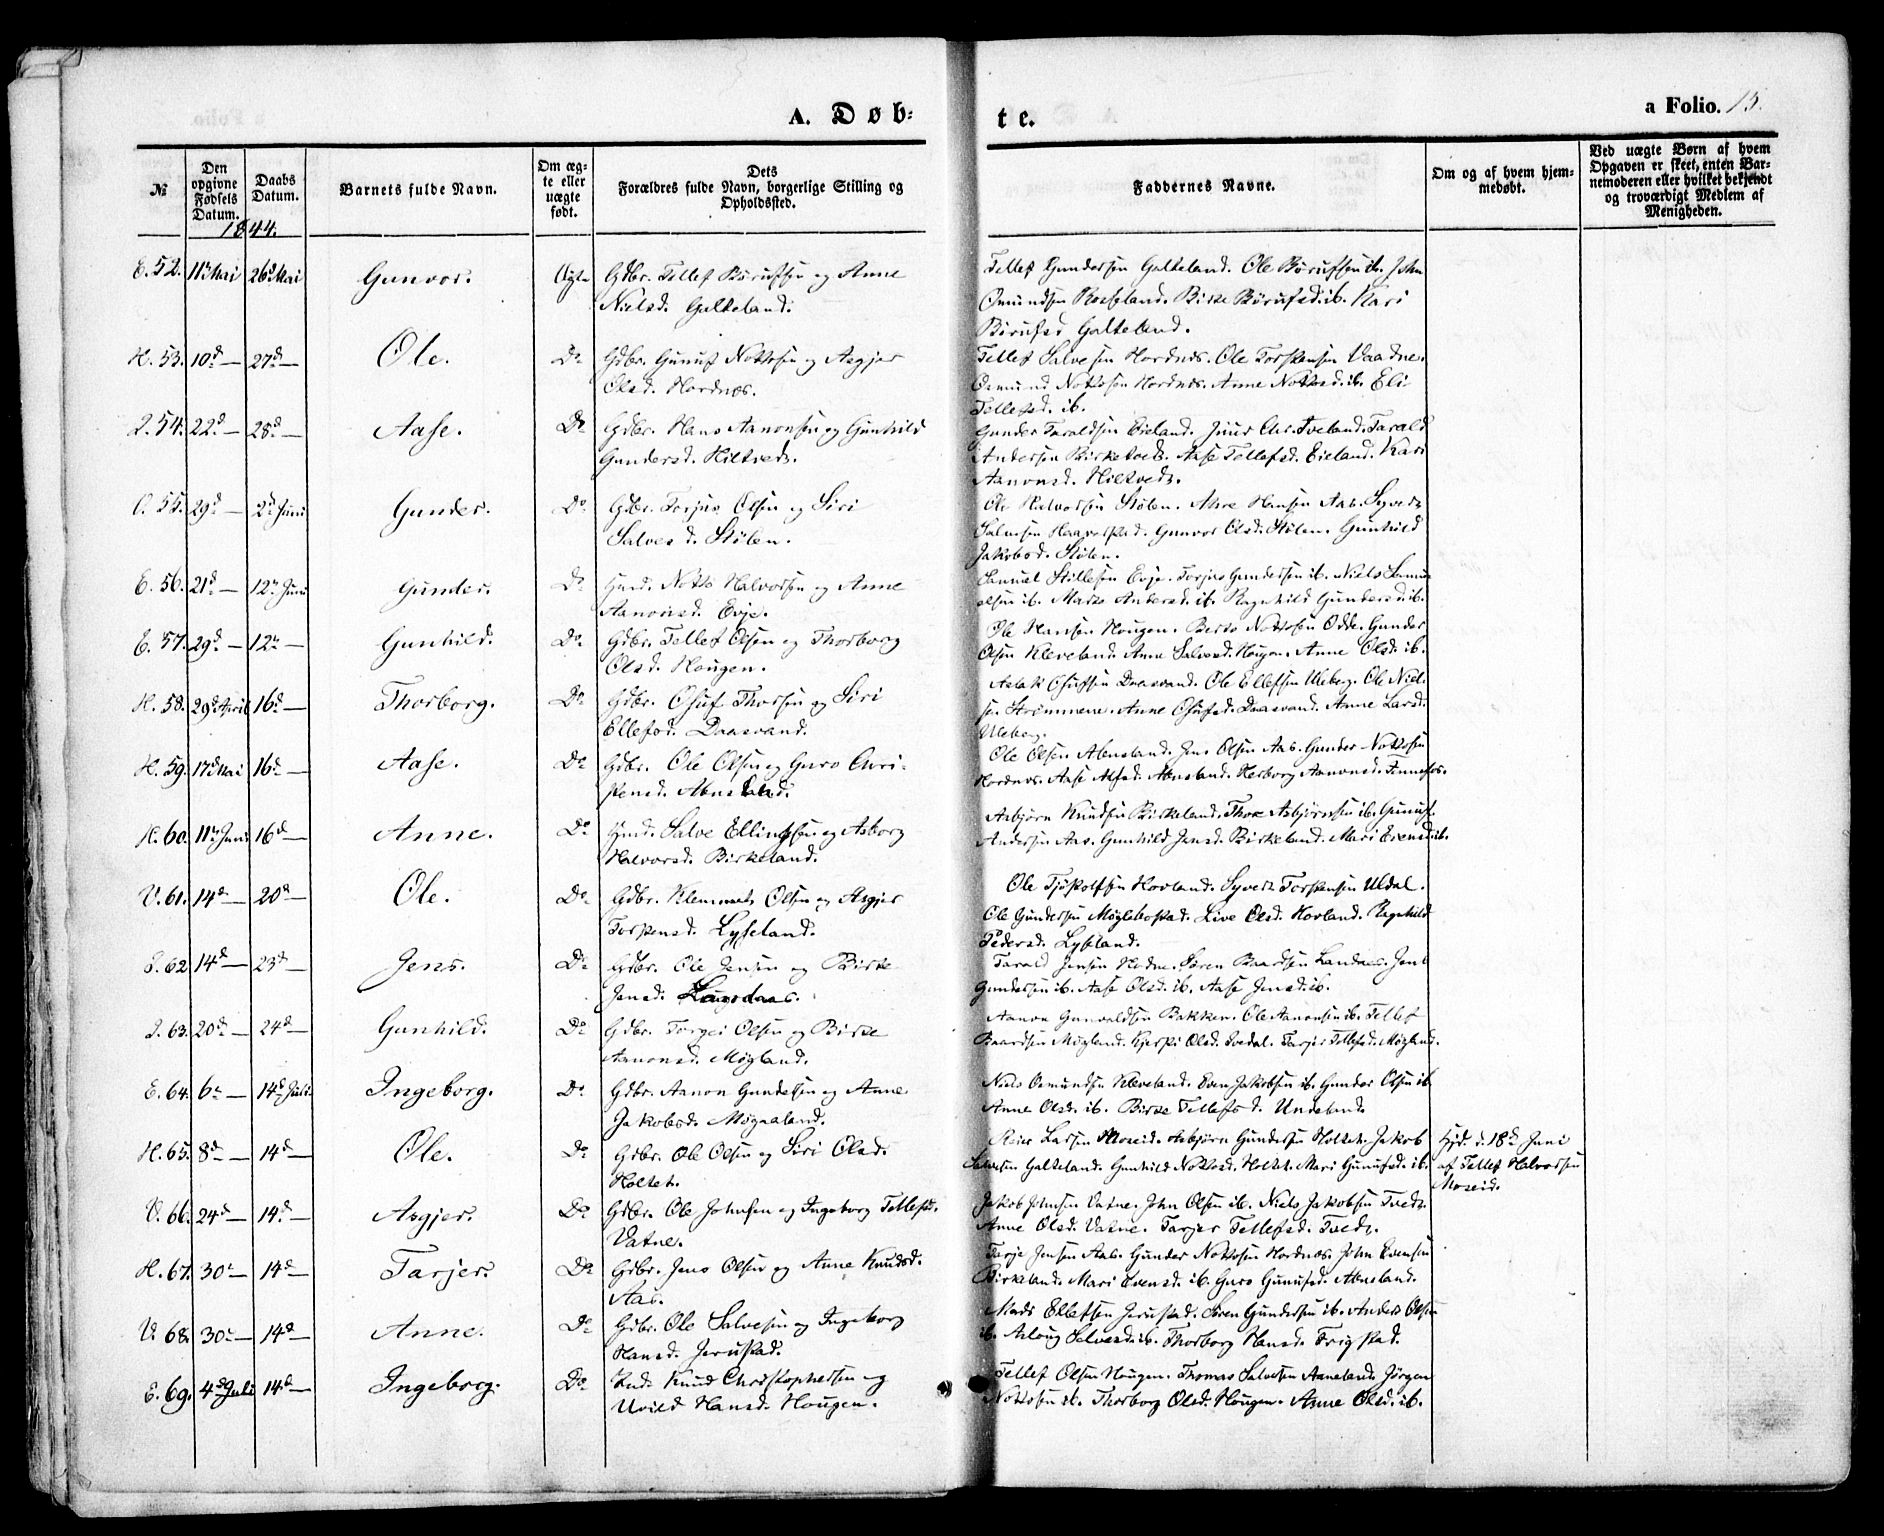 A. Døb=
te.
a Folio. 15.
№
Den opgivne Fødsels Datum.
Daabs Datum.
Barnets fulde Navn.
Om ægte eller uægte født.
Dets Forældres fulde Navn, borgerlige Stilling og Opholdssted.
Faddernes Navne.
Om og af hvem hjemmedøbt.
Ved uægte Børn af hvem Opgaven er skeet, enten Barnemoderen eller hvilket bekjendt og troværdigt Medlem af Menigheden.
1844.
E. 52. 11te Mai 26d Mai Gunvor. Ægte Gdbr. Tellef Børufsen og Anne
Nielsd. Galteland.
Tellef Gundersen Galteland. Ole Børufsen ib. John
Osmundsen Røseland. Birte Børufsd. ib. Kari
Børufsd Galteland.
H. 53. 10d — 27d — Ole. Do Gdbr. Gunuf Nottosen og Asgjer
Olsd. Hordnes.
Tellef Salvesen Hordnes. Ole Torstensen Vaadne.
Osmund Nottosen Hordnes. Anne Nottosd. ib. Eli
Tellefsd. ib.
I. 54. 22d — 28d — Aase. Do Gdbr. Hans Aanonsen og Gunhild
Gundersd. Hiltvedt.
Gunder Taraldsen Eieland. Juur Chr. Tveland. Tarald
Andersen Birketvedt. Aase Tellefsd. Eieland. Kari
Aanonsd. Hiltvedt.
O. 55. 29d — 2d Juni Gunder. Do Gdbr. Torjus Olsen og Siri
Salvesd. Stølen.
Ole Halvorsen Stølen. Hansen Aas. Syvert
Salvesen Haaverstad. Gunvor Olsd. Stølen. Gunhild
Jakobsd. Stølen.
E. 56. 21d — 12te Juni Gunder. Do Hmd. Notto Halvorsen og Anne
Aanonsd. Evje.
Samuel Stillesen Evje. Torjus Gundersen ib. Niels Samu-
elsen ib. Marte Andersd. ib. Ragnhild Gundersd. ib.
E. 57. 29d — 12te — Gunhild. Do Gdbr. Tellef Olsen og Thorborg
Olsd. Hougen.
Ole Hansen Hougen. Nottosen Odde. Gunder
Olsen Kleveland. Anne Salvesd. Hougen. Anne Olsd. ib.
H. 58. 29d April 16d — Thorborg. Do Gdbr. Osuf Thorsen og Siri
Ellefsd. Daasvand.
Aslak Osufsen Daasvand. Ole Ellefsen Uleberg. Ole Niel-
sen Strømmene. Anne Osufsd. Daasvand. Anne Larsd.
Uleberg.
H. 59. 17d Mai 16d — Aase. Do Gdbr. Ole Olsen og Guro Chri-
stensd. Abnseland.
Ole Olsen Abnseland. Jens Olsen Aas. Gunder Nottosen
Hordnes. Aase Alfsd. Abnseland. Herborg Aanonsd. Fennefos.
H. 60. 11te Juni 16d — Anne. Do Hmd. Salve Ellingsen og Asborg
Halvorsd. Birkeland.
Asbjørn Knudsen Birkeland. Thore Asbjørnsen ib. Gunuf
Andersen Aas. Gunhild Jensd. Birkeland. Mari Evensd. ib.
V. 61. 14d — 20d — Ole. Do Gdbr. Klemmet Olsen og Asgjer
Torstensd. Lyseland.
Ole Tjøstolfsen Hovland. Syvert Torstensen Uldal.
Ole Gundersen Møglebostad. Live Olsd. Hovland. Ragnhild
Pedersd. Lyseland.
S. 62. 14d — 23d — Jens. Do Gdbr. Ole Jensen og Birte
Jensd.
Tarald Jensen Hodne. Søren Baardsen Landaas. Jens
Gundersen ib. Aase Olsd. ib. Aase Jensd. ib.
I. 63. 20d — 24d — Gunhild. Do Gdbr. Torgei Olsen og Birte
Aanonsd. Møgland.
Aanon Gunvaldsen Bakken. Ole Aanonsen ib. Tellef
Baardsen Møgland. Kjersti Olsd. Ivedal. Tarjer Tellefsd. Møgland.
E. 64. 6te — 14d Juli Ingeborg. Do Gdbr. Aanon Gundersen og Anne
Jakobsd. Møgaaland.
Niels Osmundsen Kleveland. Even Jakobsen ib. Gunder Olsen ib.
Anne Olsd. ib. Birte Tellefsd. Undeland.
H. 65. 8d — 14d — Ole. Do Gdbr. Ole Olsen og Siri Olsd.
Holtet.
Larsen Moseid. Asbjørn Gundersen Holtet. Jakob
Salvesen Galteland. Gunhild Nottosd. Holtet. Mari Gunufsd. ib.
Hjd. d. 18de Juni
af Tellef Halvorsen
Moseid.
V. 66. 24d — 14d — Asgjer. Do Gdbr. Ole Johnsen og Ingeborg Tellefsd.
Vatne.
Jakob Johnsen Vatne. John Olsen ib. Niels Jakobsen Tvedt.
Anne Olsd. Vatne. Tarjer Tellefsd. Tvedt.
H. 67. 30te — 14d — Tarjer. Do Gdbr. Jens Olsen og Anne Knudsd.
Aas.
Tarje Jensen Aas. Gunder Nottosen Hordnes. John Evensen
Birkeland. Mari Evensd. ib. Guro Gunufsd. Abnseland.
V. 68. 30te — 14d — Anne. Do Gdbr. Ole Salvesen og Ingeborg
Hansd. Jerustad.
Mads Ellefsen Jerustad. Søren Gundersen ib. Anders Olsen
ib. Asloug Salvesd. ib. Thorborg Hansd. Frigstad.
E. 69. 4d Juli 14d — Ingeborg. Do Knud Christophersen og
Uvild Hansd. Hougen.
Tellef Olsen Hougen. Thomas Salvesen Aaneland. Jørgen
Nottosen ib. Thorborg Olsd. Hougen. Anne Olsd. ib.